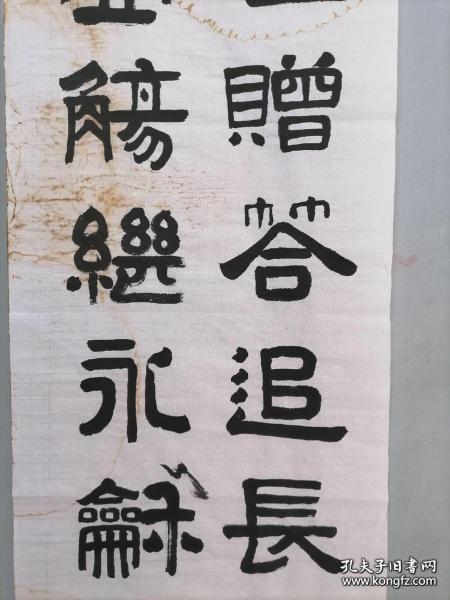 贈荅追長
觴繼永龢
孔夫子旧书网
www.kongfz.com